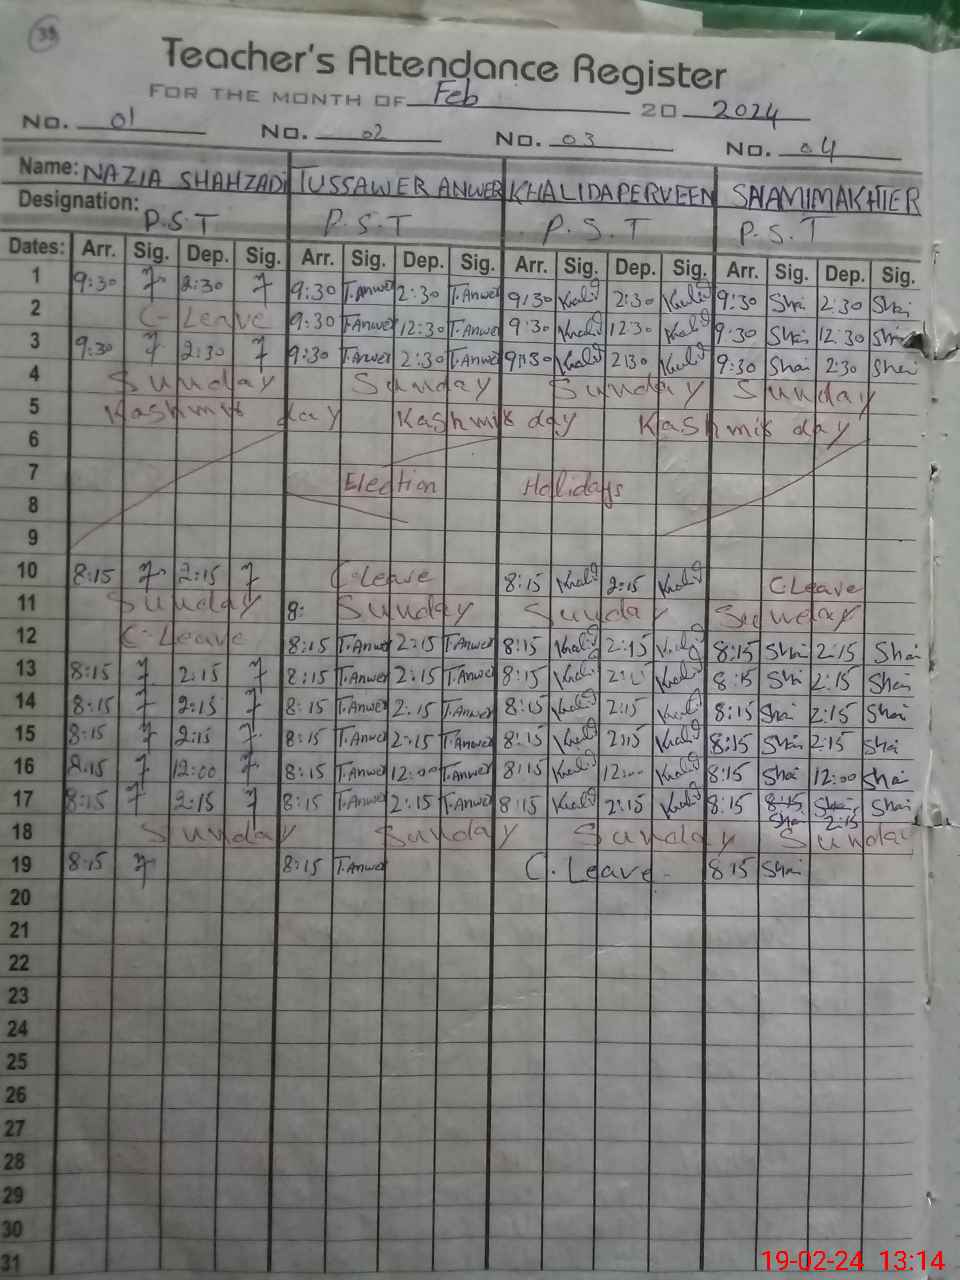 39
Teacher's Attendance Register
FOR THE MONTH OF Feb 20 2024
No. 01 No. 02 No. 03 No. 04
Name: NAZIA SHAHZADI TUSSAWER ANWER KHALIDA PERVEEN SHAMIM AKHTER
Designation: P.S.T P.S.T P.S.T P.S.T
Dates: Arr. Sig. Dep. Sig. Arr. Sig. Dep. Sig. Arr. Sig. Dep. Sig. Arr. Sig. Dep. Sig.
1 9:30 2:30 9:30 T.Anwer 2:30 T.Anwer 9:30 Khalid 2:30 Khalid 9:30 Sha 2:30 Sha
2 C-Leave 9:30 T.Anwer 12:30 T.Anwer 9:30 Khalid 12:30 Khalid 9:30 Sha 12:30 Sha
3 9:30 2:30 9:30 T.Anwer 2:30 T.Anwer 9:30 Khalid 2:30 Khalid 9:30 Sha 2:30 Sha
4 Sunday Sunday Sunday Sunday
5 Kashmir day Kashmir day Kashmir day
6
7 Election Holidays
8
9
10 8:15 2:15 C-Leave 8:15 Khalid 2:15 Khalid C Leave
11 Sunday 8: Sunday Sunday Sunday
12 C-Leave 8:15 T.Anwer 2:15 T.Anwer 8:15 Khalid 2:15 Khalid 8:15 Sha 2:15 Sha
13 8:15 2:15 8:15 T.Anwer 2:15 T.Anwer 8:15 Khalid Khalid 8:15 Sha 2:15 Sha
14 8:15 2:15 8:15 T.Anwer 2:15 T.Anwer 8:15 Khalid 2:15 Khalid 8:15 Sha 2:15 Sha
15 8:15 2:15 8:15 T.Anwer 2:15 T.Anwer 8:15 Khalid 2:15 Khalid 8:15 Sha 2:15 Sha
16 12:00 8:15 T.Anwer 12:00 T.Anwer 8:15 Khalid 12:00 Khalid 8:15 Sha 12:00 Sha
17 8:15 2:15 8:15 T.Anwer 2:15 T.Anwer 8:15 Khalid 2:15 Khalid 8:15 8:15 Sha Sha
Sha 2:15
18 Sunday Sunday Sunday Sunday
19 8:15 8:15 T.Anwer C. Leave 8:15 Sha
20
21
22
23
24
25
26
27
28
29
30
31
19-02-24 13:14